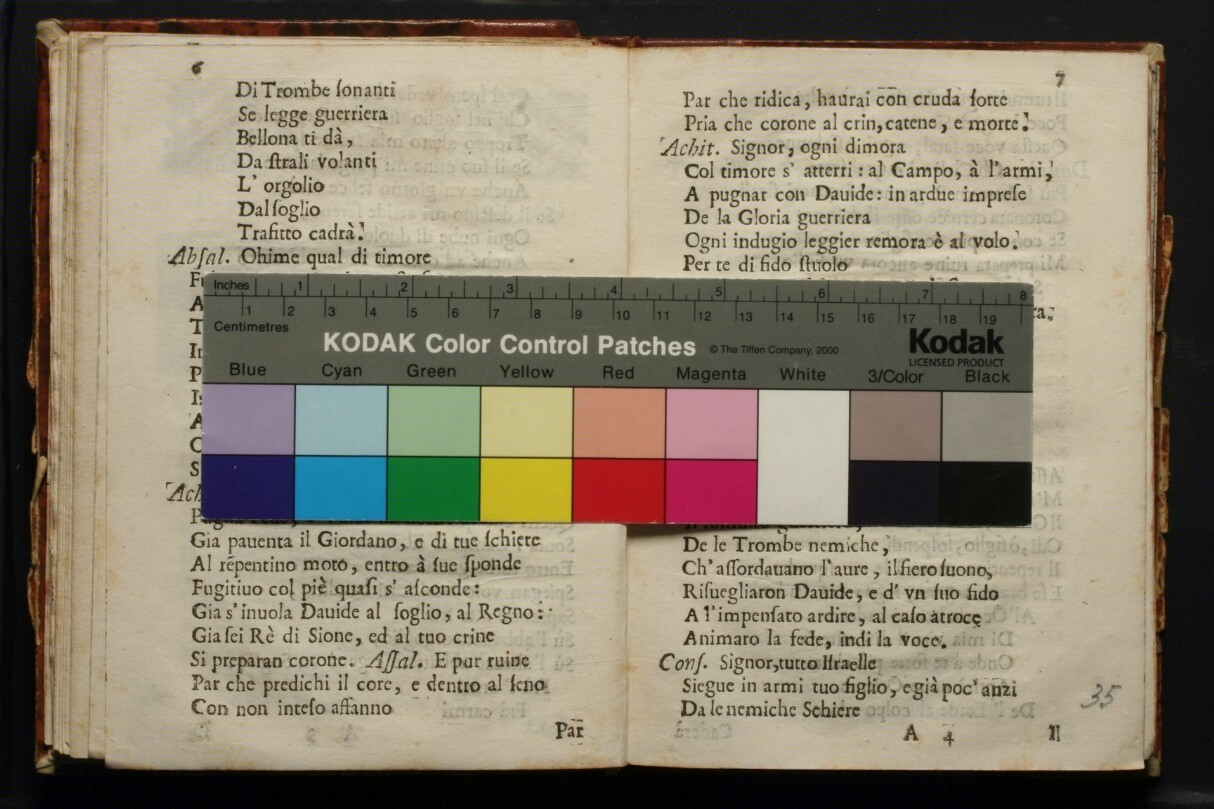 6
Di Trombe ſonanti
Se legge guerriera
Bellona ti dà,
Da ſtrali volanti
L' orgolio
Dal ſoglio
Trafitto cadrà!
Abſal. Ohime qual di timore
Gia pauenta il Giordano, e di tue ſchiere
Al repentino moto, entro à ſue ſponde
Fugitiuo col piè quaſi s' aſconde:
Gia s' inuola Dauide al ſoglio, al Regno:
Gia ſei Rè di Sione, ed al tuo crine
Si preparan corone. Aſſal. E pur ruine
Par che predichi il core, e dentro al ſeno
Con non inteſo affanno
Par
7
Par che ridica, haurai con cruda ſorte
Pria che corone al crin, catene, e morte!
Achit. Signor, ogni dimora
Col timore s' atterri: al Campo, à l'armi,
A pugnar con Dauide: in ardue impreſe
De la Gloria guerriera
Ogni indugio leggier remora è al volo.
Per te di fido ſtuolo
Inches 1 2 3 4 5 6 7 8
Centimetres 1 2 3 4 5 6 7 8 9 10 11 12 13 14 15 16 17 18 19
KODAK Color Control Patches © The Tiffen Company, 2000 Kodak
LICENSED PRODUCT
Blue Cyan Green Yellow Red Magenta White 3/Color Black
De le Trombe nemiche,
Ch' aſſordauano l'aure, il fiero ſuono,
Riſuegliaron Dauide, e d' vn ſuo fido
A l'impenſato ardire, al caſo atroce
Animaro la fede, indi la voce.
Conſ. Signor, tutto Iſraelle
Siegue in armi tuo figlio, e già poc' anzi
Da le nemiche Schiere
A 4 Il
35